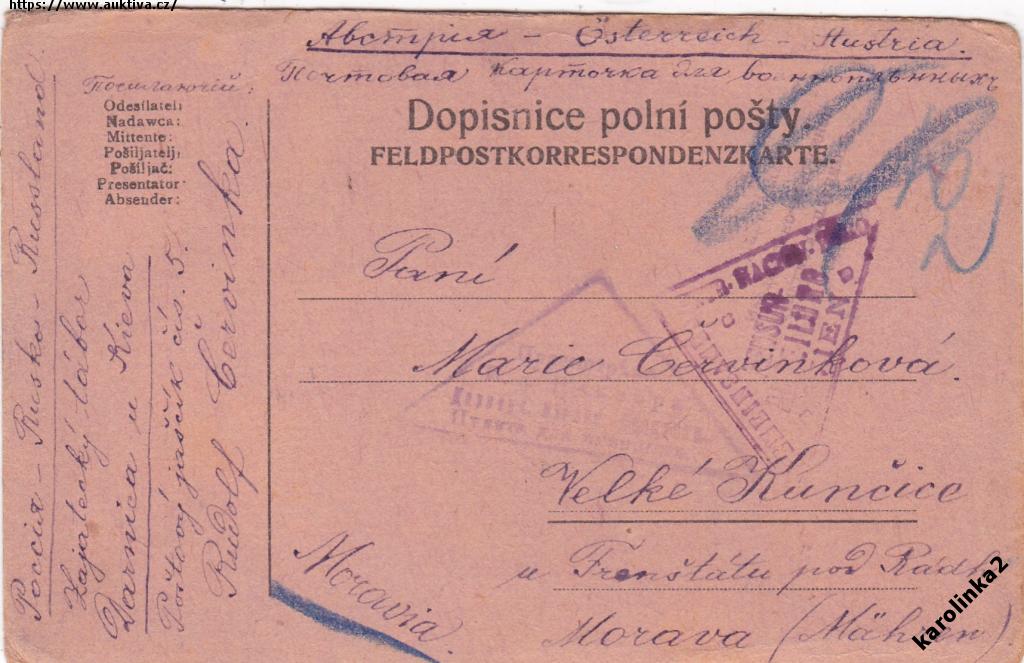 https://www.auktiva.cz/
Австрія - Österreich - Austria.
Почтовая карточка для военноплѣнныхъ
Dopisnice polní pošty.
FELDPOSTKORRESPONDENZKARTE.
Посилаючій:
Odesílatel:
Nadawca:
Mittente:
Pošiljatelj:
Pošiljač:
Presentator:
Absender:
Россия - Rusko - Russland
Zajatecký tábor
Darnica u Kieva
Poštový jaščik čís. 5.
Rudolf Červinka
Paní
Marie Červinková.
Velké Kunčice
u Frenštátu pod Radh
Morava (Mähren)
Moravia.
WIEN
karolinka2